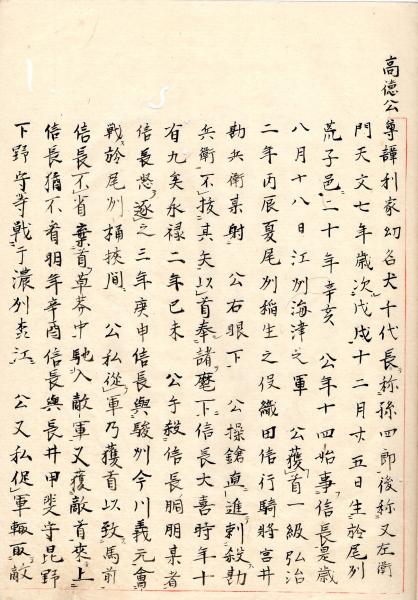 高德公尊諱利家幼名犬千代長称孫四郎後称又左衛
門天文七年歲次戊戌十二月廿五日生於尾州
荒子邑二十年辛亥　公年十四始事信長是歲
八月十八日江州海津之軍　公獲首一級弘治
二年丙辰夏尾州稲生之役織田信行騎將宮井
勘兵衛某射　公右眼下　公操鎗直進刺殺勘
兵衛不抜其矢以首奉諸麾下信長大喜時年十
有九矣永禄二年己未　公手殺信長同朋某者
信長怒逐之三年庚申信長與駿州今川義元會
戰於尾州桶挾間　公私從軍乃獲首以致馬前
信長不省棄首草莽中馳入敵軍又獲敵首來上
信長猶不省明年辛酉信長與長井甲斐守昆野
下野守等戰于濃州森江　公又私促軍輙取敵